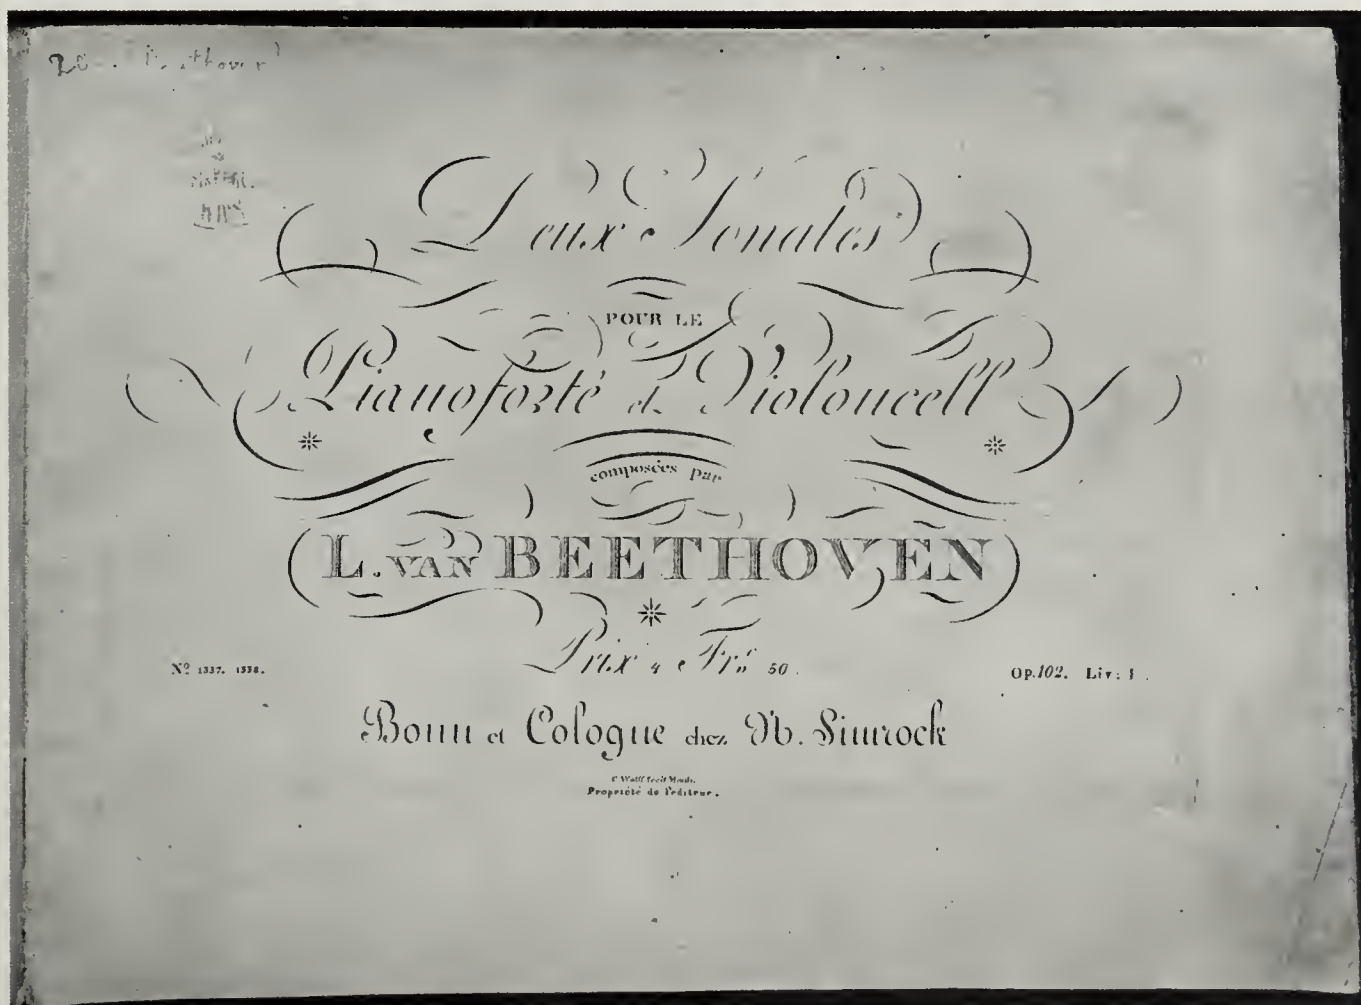 Beethoven
Deux Sonates
POUR LE
Pianoforté et Violoncell
composées par
L. VAN BEETHOVEN
Prix 4 Frs 50.
Nº 1337. 1338.
Op. 102. Liv: 1.
Bonn et Cologne chez N. Simrock
Propriété de l'editeur.